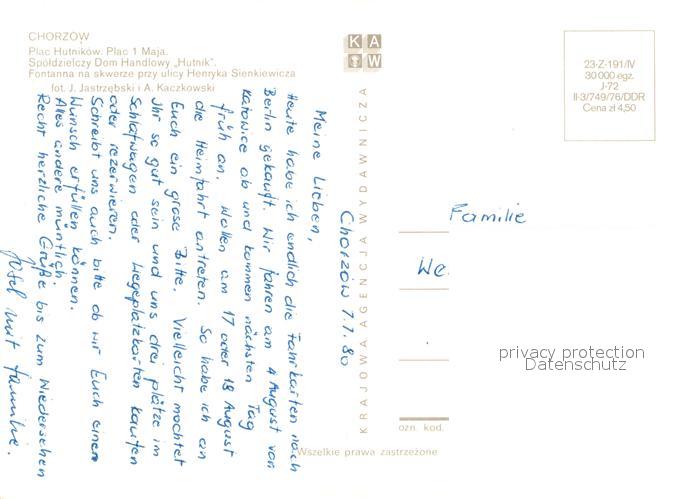 CHORZÓW
Plac Hutników. Plac 1 Maja.
Spółdzielczy Dom Handlowy „Hutnik".
Fontanna na skwerze przy ulicy Henryka Sienkiewicza
fot. J. Jastrzębski i A. Kaczkowski
KAW
KRAJOWA AGENCJA WYDAWNICZA
23-Z-191/IV
30 000 egz.
J-72
II-3/749/76/DDR
Cena zł 4,50
Chorzów 7.7.80
Meine Lieben,
Heute habe ich endlich die Fahrkarten nach
Berlin gekauft. Wir fahren am 4 August von
Katowice ab und kommen nächsten Tag
früh an. Wollen am 17 oder 18 August
die Heimfahrt antreten. So habe ich an
Euch ein grose Bitte. Vielleicht möchtet
Ihr so gut sein und uns drei plätze im
Schlafwagen oder Liegeplatzkarten kaufen
oder rezerwieren.
Schreibt uns auch bitte ob wir Euch einen
Wunsch erfüllen können.
Alles andere müntlich.
Recht herzliche Grüße bis zum Wiedersehen
Josel mit familie.
Familie
We.
privacy protection
Datenschutz
ozn. kod.
Wszelkie prawa zastrzeżone